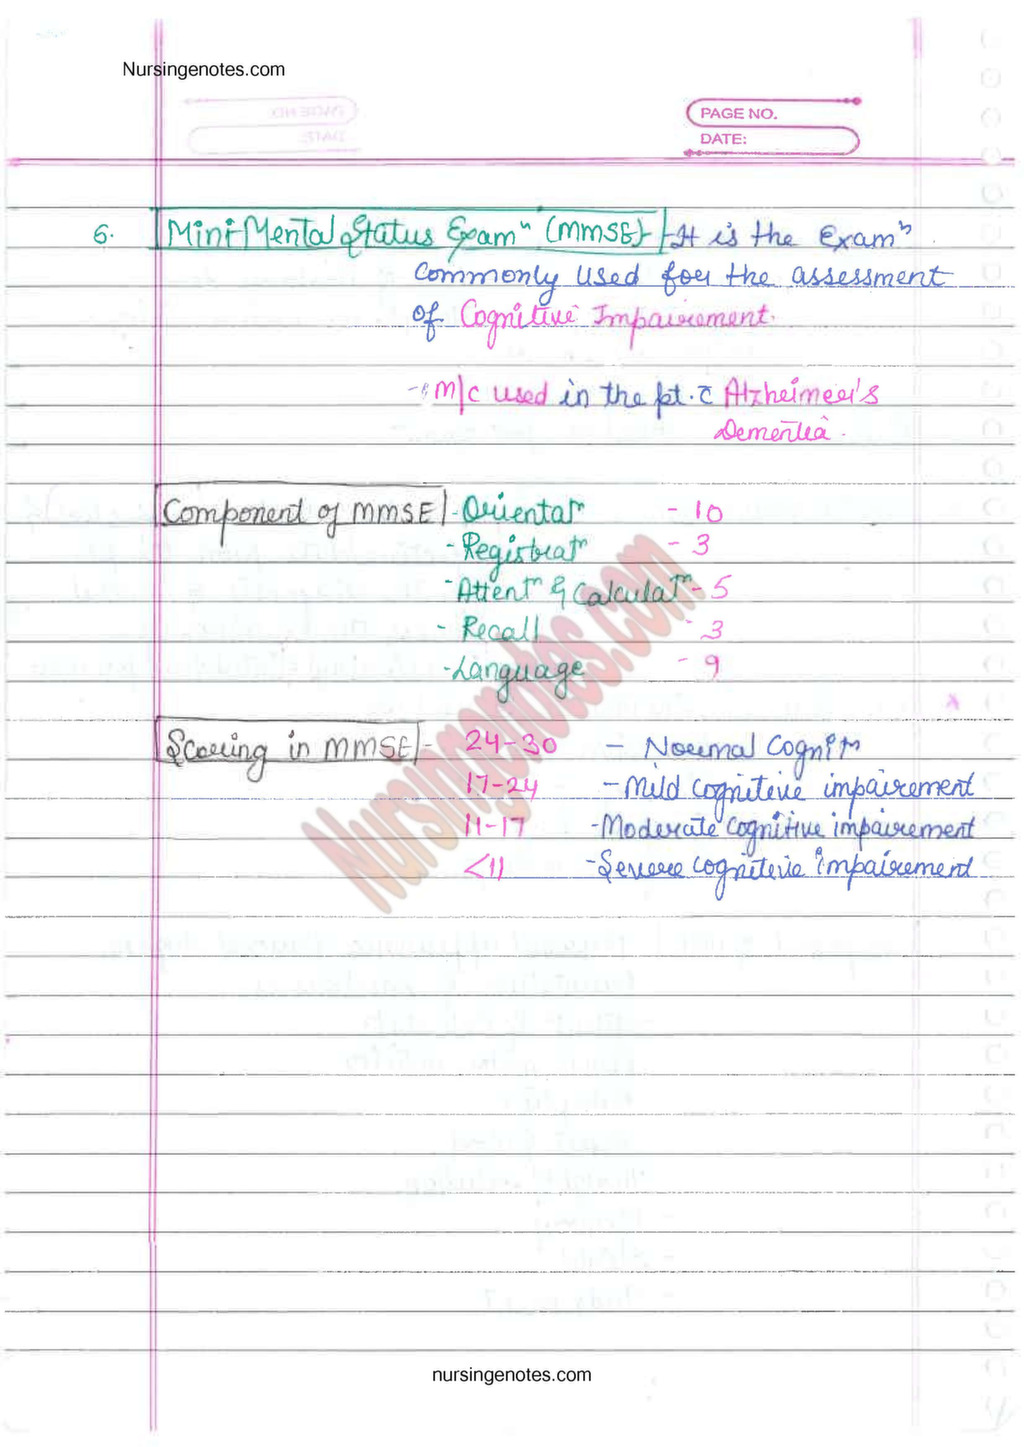 Nursingenotes.com
PAGE NO.
DATE:
6. Mini-Mental Status Examⁿ (MMSE) - It is the Examⁿ
commonly used for the assessment
of Cognitive Impairement.
- M/C used in the pt. c̄ Alzheimer's
Dementia.
Component of MMSE - Orientatⁿ - 10
- Registratⁿ - 3
- Attentⁿ & Calculatⁿ - 5
- Recall - 3
- Language - 9
Scoring in MMSE - 24-30 - Normal Cognitⁿ
17-24 - Mild cognitive impairement
11-17 - Moderate cognitive impairement
<11 - Severe cognitive impairement
Nursingenotes.com
nursingenotes.com